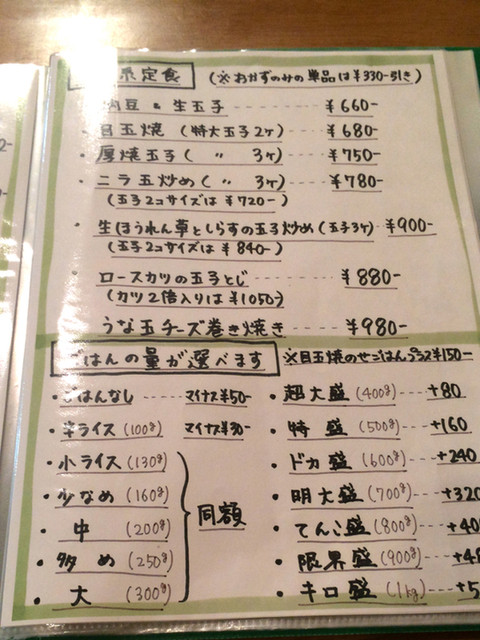 系定食 (※おかずのみの単品は¥330-引き)
納豆 & 生玉子 ---- ¥660-
・目玉焼 (特大玉子2ケ) ---- ¥680-
・厚焼玉子 ( 〃 3ケ) ---- ¥750-
・ニラ玉炒め ( 〃 3ケ) --- ¥780-
(玉子2コサイズは ¥720-)
・生ほうれん草としらすの玉子炒め (玉子3ケ) ¥900-
(玉子2コサイズは ¥840-)
・ロースカツの玉子とじ -------- ¥880-
(カツ2倍入りは ¥1050)
うな玉チーズ巻き焼き ---- ¥980-
ごはんの量が選べます ※目玉焼のせごはんプラス¥150-
・ごはんなし ---- マイナス¥50-
・半ライス (100g) マイナス¥30-
・小ライス (130g)
・少なめ (160g)
・中 (200g)
・多め (250g)
・大 (300g)
同額
・超大盛 (400g) --- +80
・特盛 (500g) ---- +160
・ドカ盛 (600g) --- +240
・明大盛 (700g) --- +320
・てんこ盛 (800g) --- +40
・限界盛 (900g) --- +4
・キロ盛 (1kg) --- +5